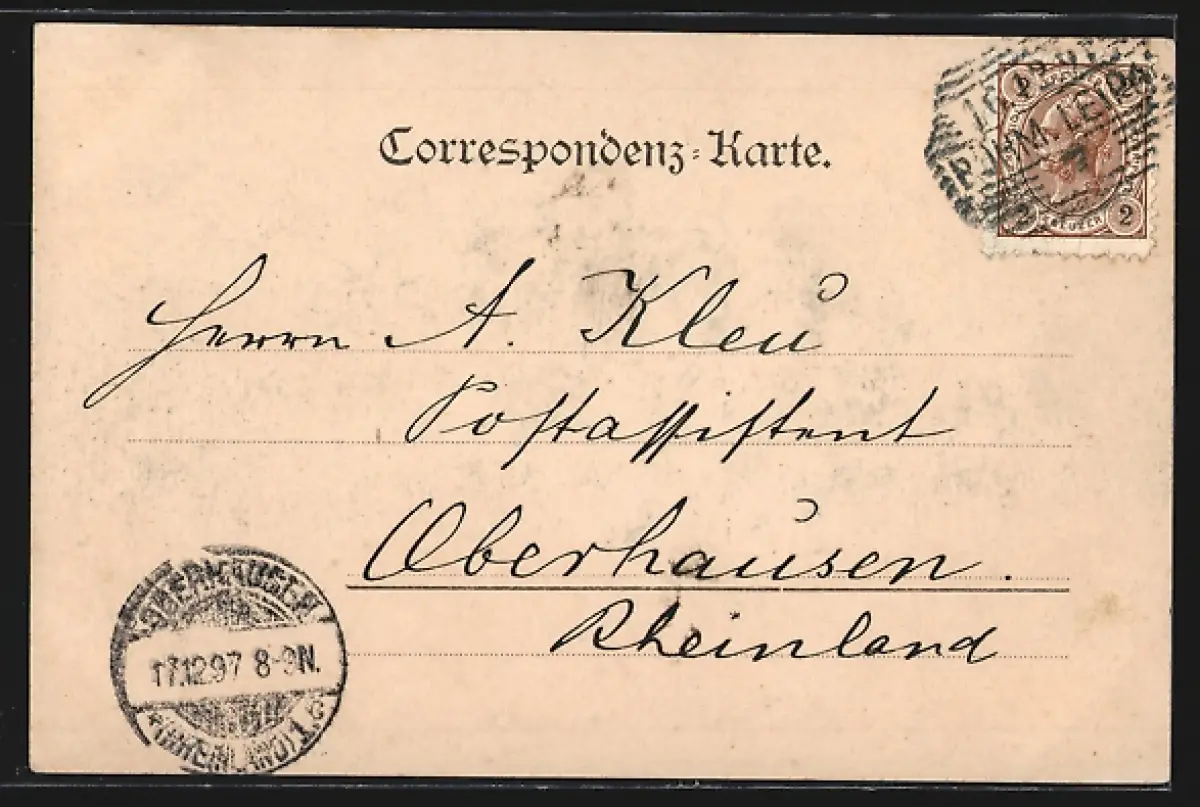 Correspondenz-Karte.
BÖHM. LEIPA
2 2
KREUZER
Herrn A. Kleu
Postassistent
Oberhausen.
Rheinland
OBERHAUSEN
17.12.97 8-9N.
(RHEINLAND) 1.c